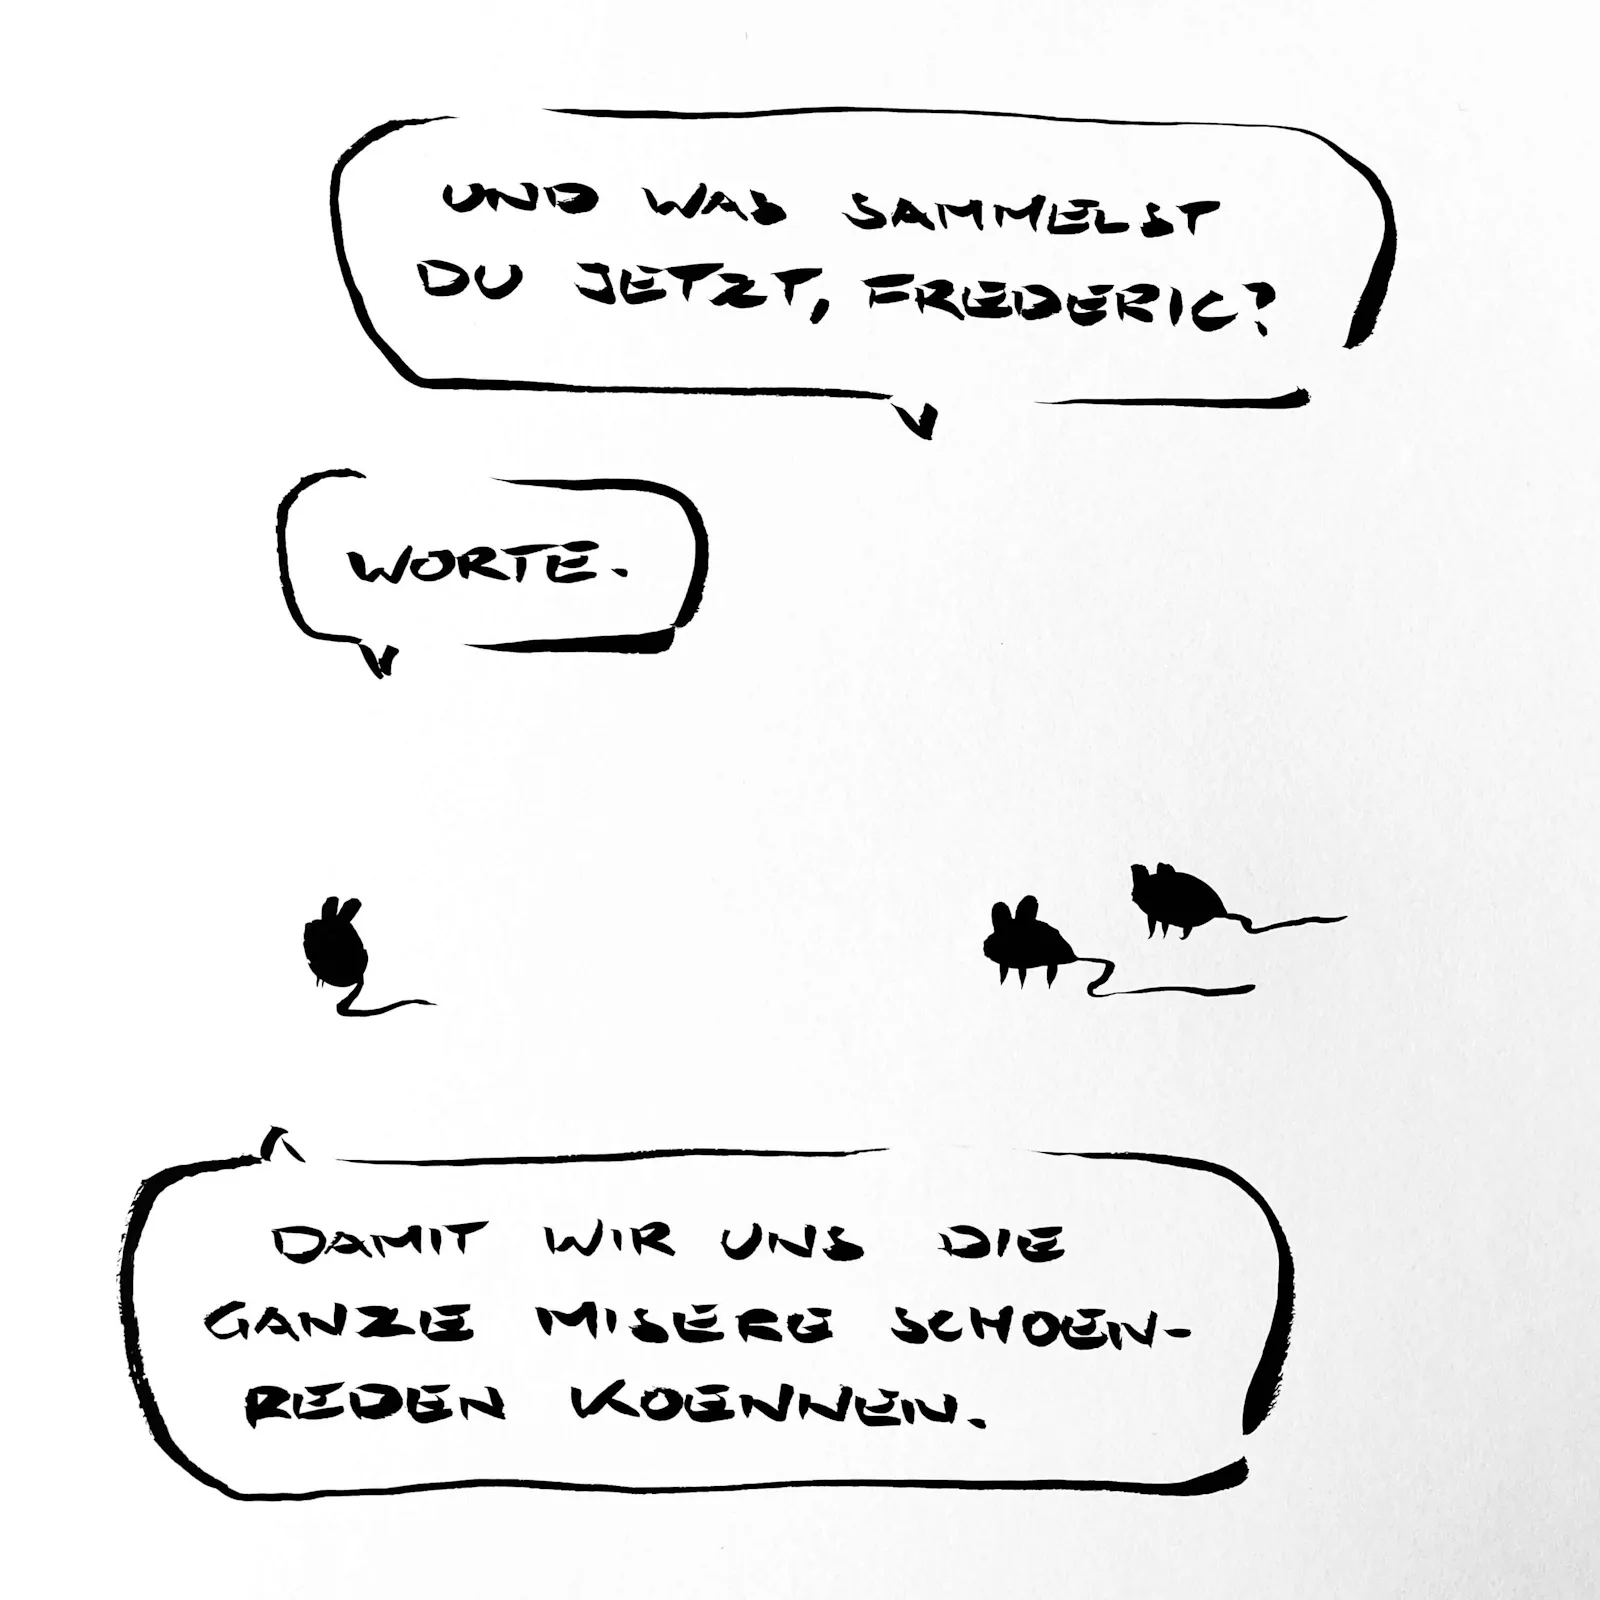 UND WAS SAMMELST
DU JETZT, FREDERIC?
WORTE.
DAMIT WIR UNS DIE
GANZE MISERE SCHOEN-
REDEN KOENNEN.